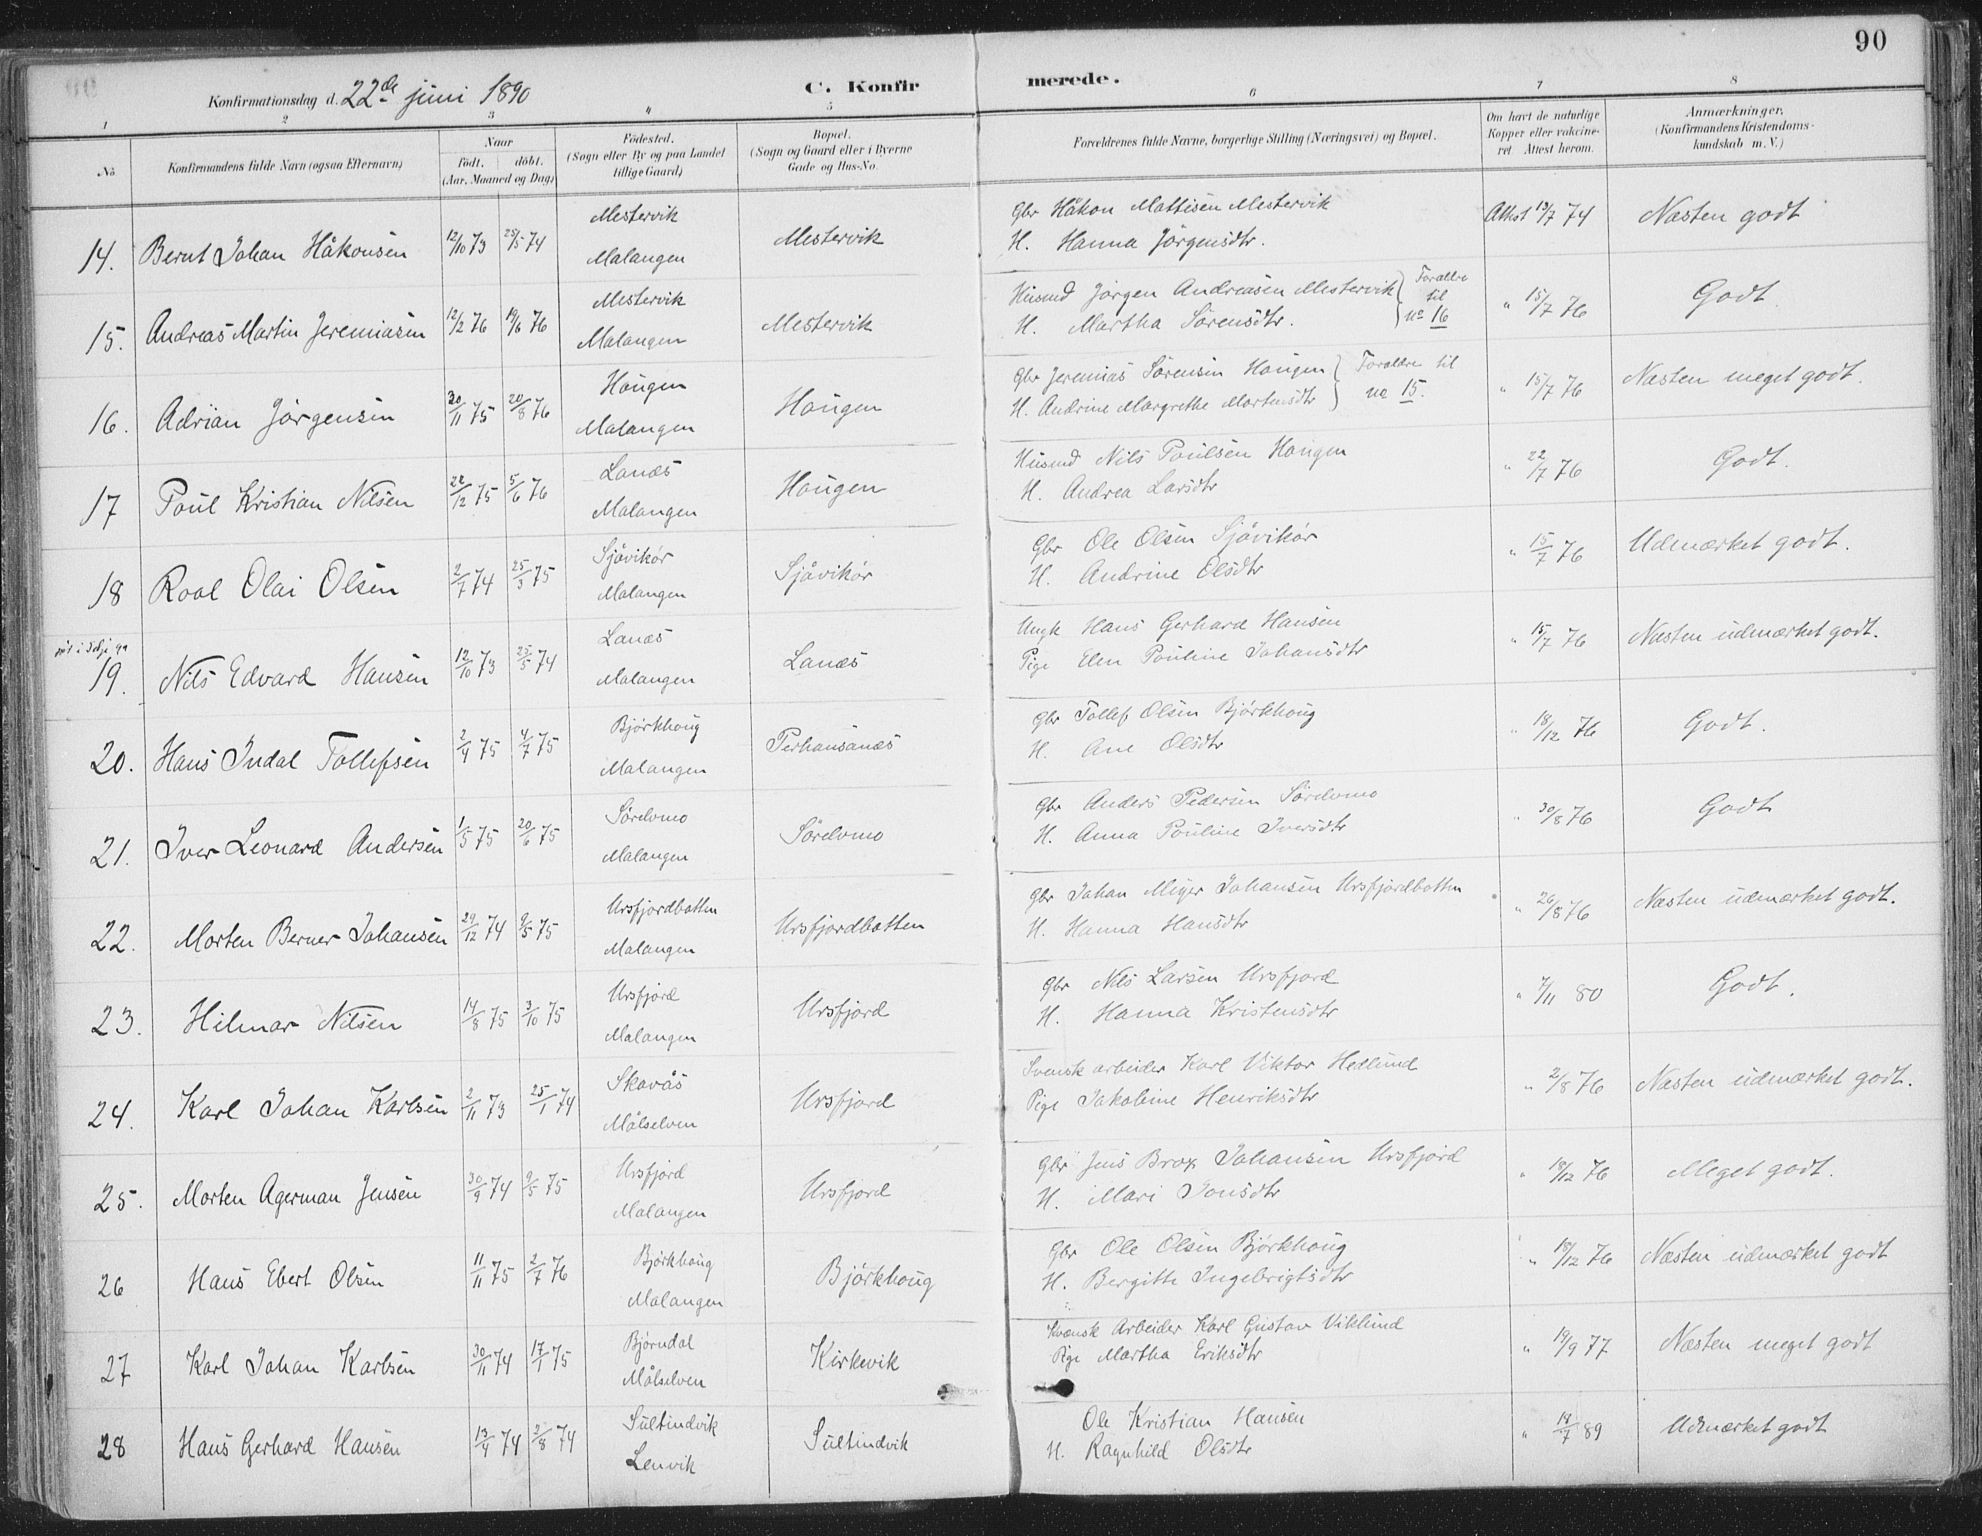 90
Konfirmationsdag d. 22de juni 1890
C. Konfirmerede.
1 2 3 4 5 6 7 8
No
Konfirmandens fulde Navn (ogsaa Efternavn)
Naar
födt. döbt.
(Aar, Maaned og Dag)
Födested.
(Sogn eller By og paa Landet tillige Gaard)
Bopæl.
(Sogn og Gaard eller i Byerne Gade og Hus-No.
Forældrenes fulde Navne, borgerlige Stilling (Næringsvei) og Bopæl.
Om havt de naturlige Kopper eller vakcineret. Attest herom.
Anmærkninger.
(Konfirmandens Kristendomskundskab m. V.)
14. Bernt Johan Håkonsen 12/10 73 25/5 74 Mestervik Malangen Mestervik
Gbr Håkon Mattisen Mestervik
H. Hanna Jørgensdtr.
Attest 13/7 74 Næsten godt
15. Andreas Martin Jeremiasen 12/2 76 19/6 76 Mestervik Malangen Mestervik
Husmd Jørgen Andreasen Mestervik
H. Martha Sørensdtr.
Forældre til no 16
" 15/7 76 Godt
16. Adrian Jørgensen 30/11 75 20/8 76 Hougen Malangen Hougen
Gbr Jeremias Sørensen Hougen
H. Andrine Margrethe Mortensdtr
Forældre til no 15.
" 15/7 76 Næsten meget godt.
17 Poul Kristian Nilsen 22/12 75 5/6 76 Lanæs Malangen Hougen
Husmd Nils Poulsen Hougen
H. Andrea Larsdtr
" 22/7 76 Godt.
18 Roal Olai Olsen 2/7 74 25/3 75 Sjåvikør Malangen Sjåvikør
Gbr Ole Olsen Sjåvikør
H. Andrine Olsdtr
" 15/7 76 Udmærket godt.
19. Nils Edvard Hansen 12/10 73 25/5 74 Lanæs Malangen Lanæs
Ungk Hans Gerhard Hansen
Pige Elen Pouline Johansdtr
" 15/7 76 Næsten udmærket godt.
20. Hans Indal Tollefsen 2/4 75 4/7 75 Bjørkhoug Malangen Perhansanæs
Gbr Tollef Olsen Bjørkhoug
H. Ane Olsdtr
" 18/12 76 Godt.
21. Iver Leonard Andersen 1/5 75 20/6 75 Sørelvmo Malangen Sørelvmo
Gbr Anders Pedersen Sørelvmo
H. Anna Pouline Iversdtr
" 30/8 76 Godt
22. Morten Berner Johansen 29/12 74 9/5 75 Ursfjordbotten Malangen Ursfjordbotten
Gbr Johan Mejer Johansen Ursfjordbotten
H. Hanna Hansdtr
" 26/8 76 Næsten udmærket godt.
23. Hilmar Nilsen 14/8 75 3/10 75 Ursfjord Malangen Ursfjord
Gbr Nils Larsen Ursfjord
H. Hanna Kristensdtr
" 7/11 80 Godt.
24. Karl Johan Karlsen 2/11 73 25/1 74 Skavås Målselven Ursfjord
Svensk arbeider Karl Viktor Hedlund
Pige Jakobine Henriksdtr
" 2/8 76 Næsten udmærket godt.
25. Morten Agerman Jensen 30/9 74 9/5 75 Ursfjord Malangen Ursfjord
Gbr Jens Brox Johansen Ursfjord
H. Mari Jonsdtr
" 18/12 76 Meget godt.
26 Hans Ebert Olsen 11/11 75 2/7 76 Bjørkhoug Malangen Bjørkhoug
Gbr Ole Olsen Bjørkhoug
H. Bergitte Ingebrigtsdtr
" 18/12 76 Næsten udmærket godt
27 Karl Johan Karlsen 30/11 74 17/1 75 Bjørndal Målselven Kirkevik
Svensk Arbeider Karl Gustav Viklund
Pige Martha Eriksdtr
" 19/9 77 Næsten meget godt
28 Hans Gerhard Hansen 13/4 74 2/8 74 Sultindvik Lenvik Sultindvik
Ole Kristian Hansen
H. Ragnhild Olsdtr
" 18/7 89 Udmærket godt